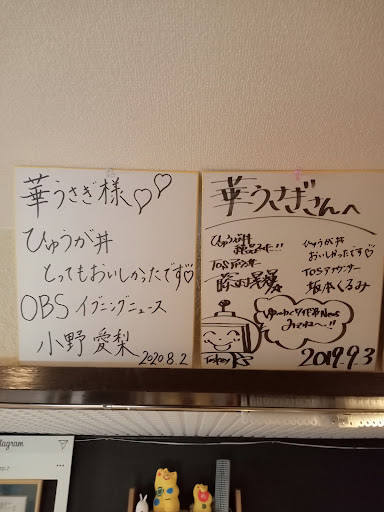 華うさぎ様♡♡
ひゅうが丼
とってもおいしかったです♡
OBS イブニングニュース
小野愛梨
2020.8.2
華うさぎさんへ
ひゅうが丼
TOSアナウンサー
ひゅうが丼
おいしかったです♡
TOSアナウンサー
坂本くるみ
みてね〜!!
2019.9.3